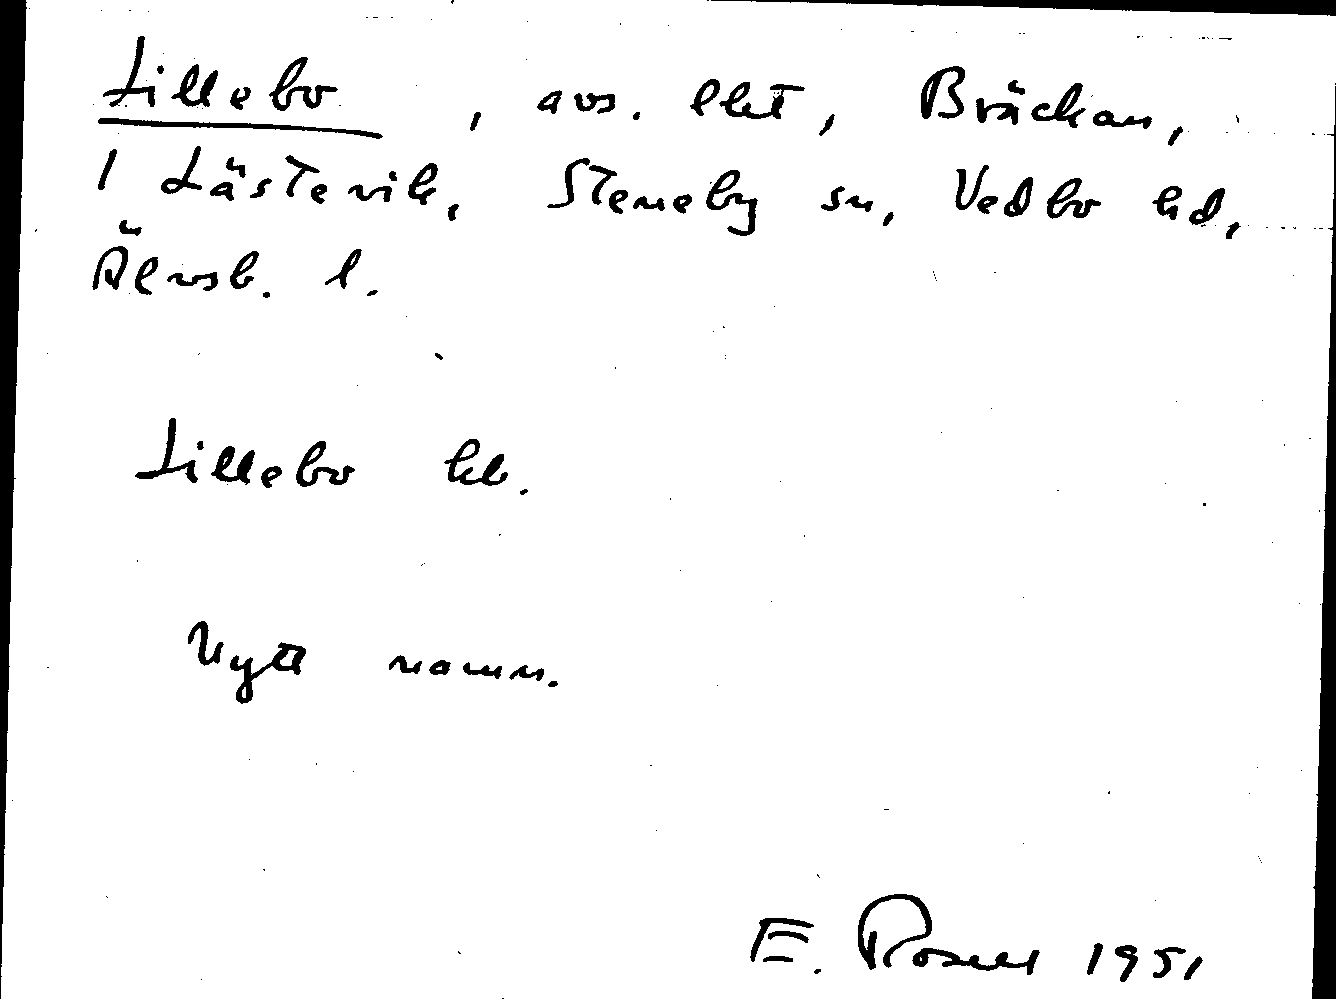 Lillebo, avs. lht, Bräckan,
1 Lästevik, Steneby sn, Vedbo hd,
Älvsb. l.
Lillebo kb.
Nytt namn.
E. Rosell 1951